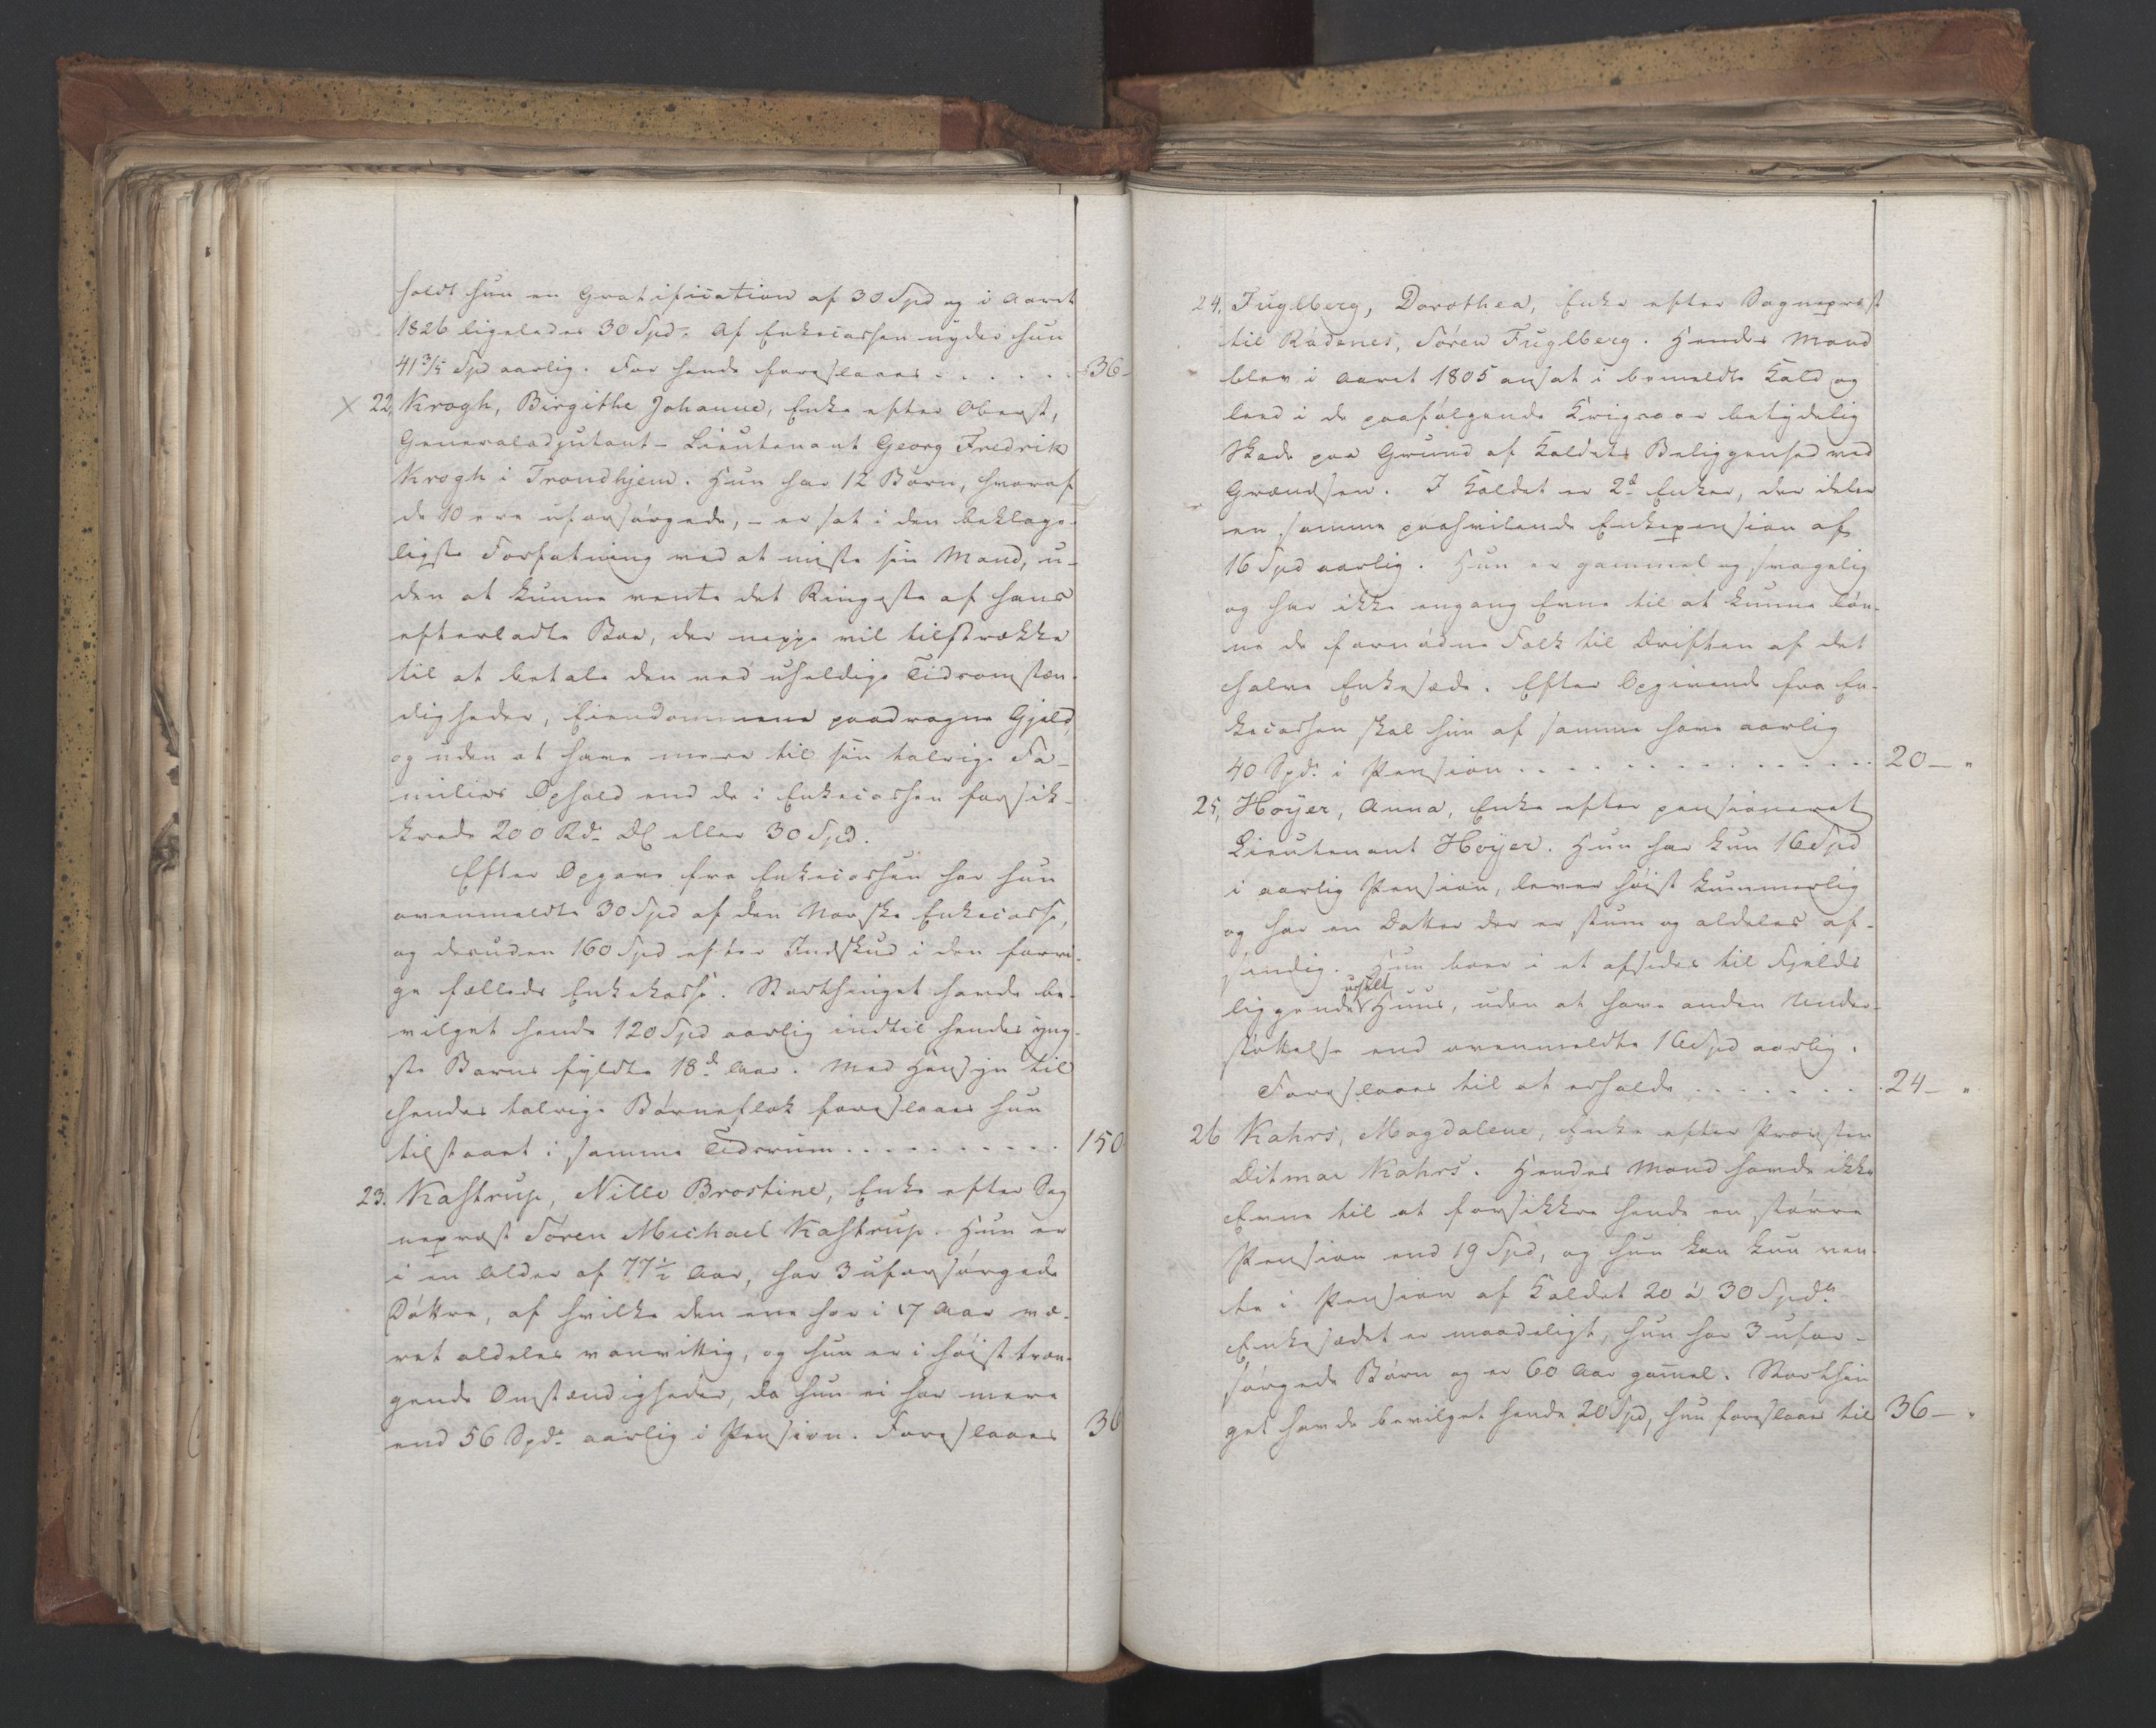 holdt hun en Gratification af 30 Spd og i Aaret
1826 ligeledes 30 Spd. Af Enkecassen nyder hun
41 3/5 Spd aarlig. For hende foreslaaes . . . . . . 36-
× 22, Krogh, Birgithe Johanne, Enke efter Oberst,
Generaladjutant-Lieutenant Georg Fredrik
Krogh i Trondhjem. Hun har 12 Børn, hvoraf
de 10 ere uforsørgede, - er sat i den beklage-
ligste Forfatning ved at miste sin Mand, u-
den at kunne vente det Ringeste af hans
efterladte Boe, der neppe vil tilstrække
til at betale den ved uheldige Tidsomstæn-
digheder, Eiendommene paadragne Gjeld,
og uden at have mere til sin talrige Fa-
milies Ophold end de i Enkecassen forsik-
krede 200 Rd. DC eller 30 Spd.
Efter Opgave fra Enkecassen har hun
ovenmeldte 30 Spd af den Norske Enkecasse,
og desuden 160 Spd efter Indskud i den forri-
ge fælleds Enkekasse. Storthinget havde be-
vilget hende 120 Spd aarlig indtil hendes yng-
ste Barns fyldte 18d Aar. Med Hensyn til
hendes talrige Børneflok foreslaaes hun
tilstaaet i samme Tidsrum . . . . . . . . . 150
23. Kastrup, Nille Brostine, Enke efter Sog
nepræst Søren Michael Kastrup. Hun er
i en Alder af 77 1/2 Aar, har 3 uforsørgede
Døttre, af hvilke den ene har i 17 Aar væ-
ret aldeles vanvittig, og hun er i høist træn-
gende Omstændigheder, da hun ei har mere
end 56 Spd. aarlig i Pension. Foreslaaes 36
24, Fuglberg, Dorothea, Enke efter Sognepræst
til Rødenes, Søren Fuglberg. Hendes Mand
blev i Aaret 1805 ansat i bemeldte Kald og
leed i de paafølgende Krigsaar betydelig
Skade paa Grund af Kaldets Beliggenhed ved
Grændsen. I Kaldet er 2d Enker, der deler
en samme paahvilende Enkepension af
16 Spd aarlig. Hun er gammel og svagelig
og har ikke engang Evne til at kunne løn-
ne de fornødne Folk til Driften af det
halve Enkesæde. Efter Opgivende fra En-
kecassen skal hun af samme have aarlig
40 Spd. i Pension . . . . . . . . . . . . . . 20 — "
25, Høyer, Anna, Enke efter pensioneret
Lieutenant Høyer. Hun har kun 16 Spd
i aarlig Pension, lever høist kummerlig
og har en Datter der er stum og aldeles af-
sindig. Hun boer i et afsides til Fjelds
liggende uselt Huus, uden at have anden Under-
støttelse end ovenmeldte 16 Spd aarlig.
Foreslaaes til at erholde . . . . . . . 24 — "
26 Kahrs, Magdalene, Enke efter Provsten
Ditmar Kahrs. Hendes Mand havde ikke
Evne til at forsikkre hende en større
Pension end 19 Spd, og hun kan kun ven-
te i Pension af Kaldet 20 à 30 Spd.
Enkesædet er maadeligt, hun har 3 ufor-
sørgede Børn og er 60 Aar gam̅el. Storthin
get havde bevilget hende 20 Spd, hun foreslaaes til 36 — "